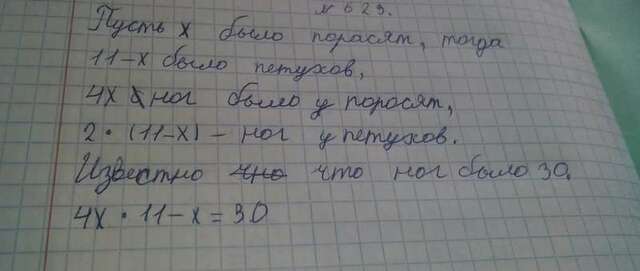 № 629.
Пусть x было порасят, тогда
11-x было петухов,
4x ног было у поросят,
2 · (11-x) - ног у петухов.
Известно что ног было 30.
4x · 11-x = 30